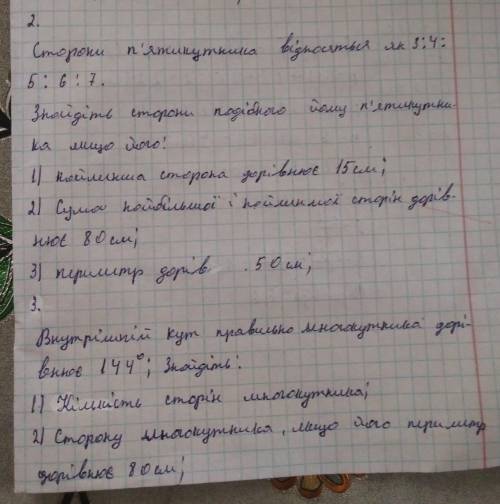 2.
Сторони п'ятикутника відносяться як 3:4:
5:6:7.
Знайдіть сторони подібного йому п'ятикутни-
ка якщо його:
1) найменша сторона дорівнює 15см;
2) Сума найбільшої і найменшої сторін дорів-
нює 80см;
3) периметр дорів 50см;
3.
Внутрішній кут правильно многокутника дорі-
внює 144°; Знайдіть:
1) Кількість сторін многокутника;
2) Сторону многокутника, якщо його периметр
дорівнює 80см;